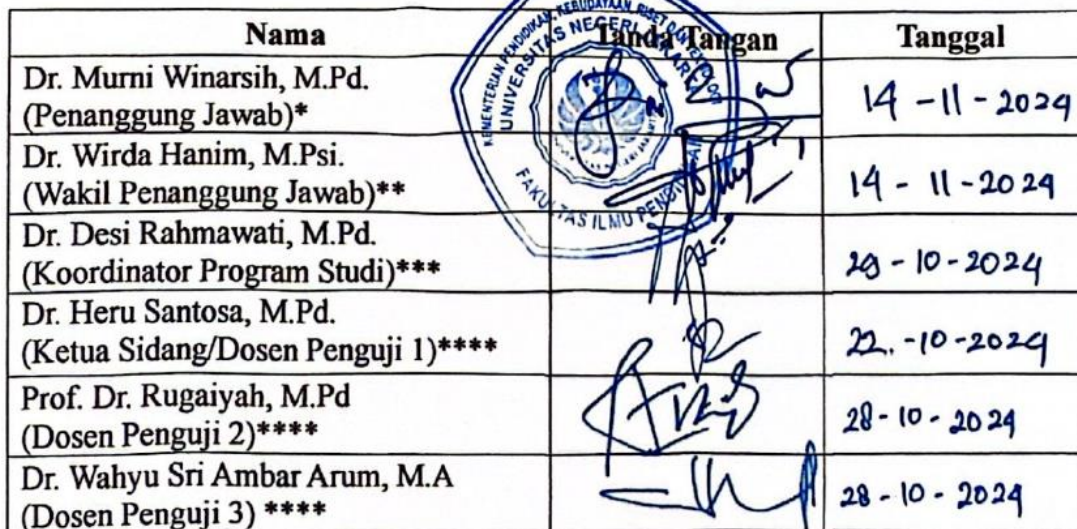 Nama Tanda Tangan Tanggal
Dr. Murni Winarsih, M.Pd.
(Penanggung Jawab)* 14 - 11 - 2024
Dr. Wirda Hanim, M.Psi.
(Wakil Penanggung Jawab)** 14 - 11 - 2024
Dr. Desi Rahmawati, M.Pd.
(Koordinator Program Studi)*** 29 - 10 - 2024
Dr. Heru Santosa, M.Pd.
(Ketua Sidang/Dosen Penguji 1)**** 22. - 10 - 2024
Prof. Dr. Rugaiyah, M.Pd
(Dosen Penguji 2)**** 28 - 10 - 2024
Dr. Wahyu Sri Ambar Arum, M.A
(Dosen Penguji 3) **** 28 - 10 - 2024
KEMENTERIAN PENDIDIKAN, KEBUDAYAAN, RISET DAN TEKNOLOGI
UNIVERSITAS NEGERI JAKARTA
FAKULTAS ILMU PENDIDIKAN